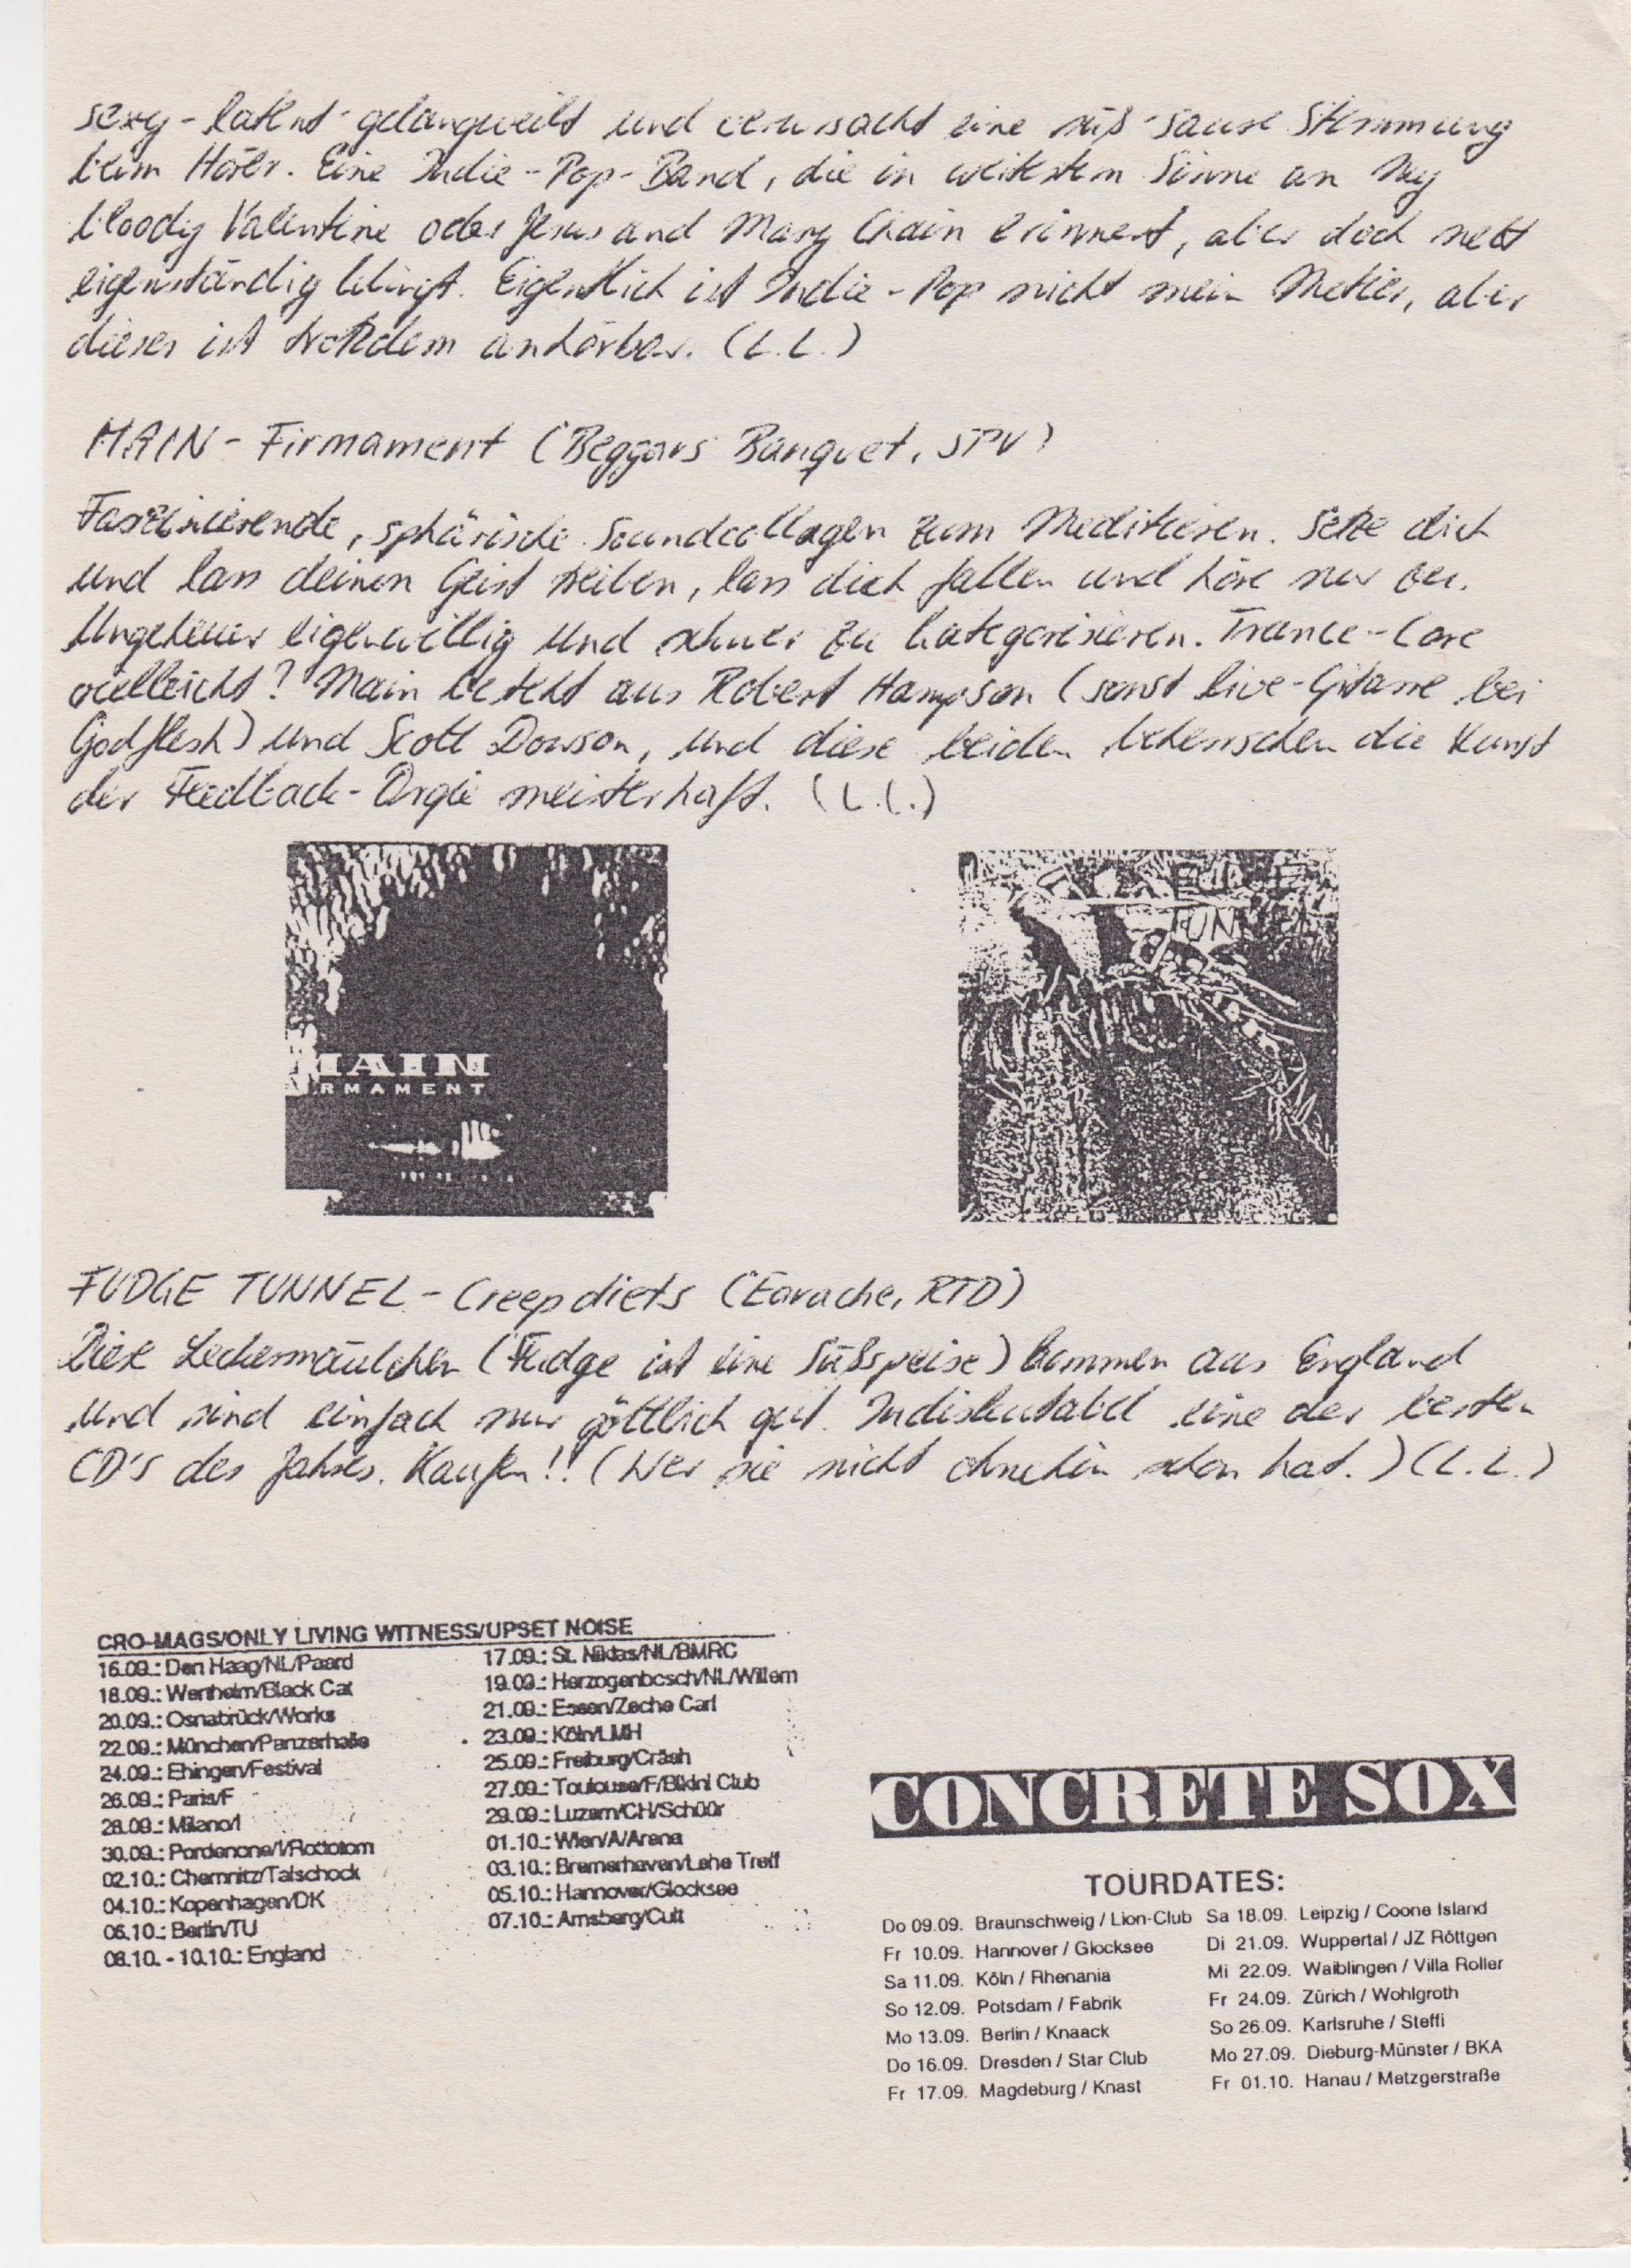 sexy-latent-gelangweilt und verursacht eine süß-saure Stimmung
beim Hörer. Eine Indie-Pop-Band, die in weitestem Sinne an My
bloody Valentine oder Jesus and Mary Chain erinnert, aber doch nett
eigenständig klingt. Eigentlich ist Indie-Pop nicht mein Metier, aber
dieser ist trotzdem anhörbar. (L.L.)
MAIN - Firmament (Beggars Banquet, SPV)
Faszinierende, sphärische Soundcollagen zum Meditieren. Setze dich
und lass deinen Geist treiben, lass dich fallen und höre nur zu.
Ungeheuer eigenwillig und schwer zu kategorisieren. Trance-Core
vielleicht? Main besteht aus Robert Hampson (sonst live-Gitarre bei
Godflesh) und Scott Dowson, und diese beiden beherrschen die Kunst
der Feedback-Orgie meisterhaft. (L.L.)
MAIN
RMAMENT
FUDGE
TUNNEL
FUDGE TUNNEL - Creepdiets (Earache, RTD)
Diese Leckermäulchen (Fudge ist eine Süßspeise) kommen aus England
und sind einfach nur göttlich gut. Indiskutabel eine der besten
CD's des Jahres. Kaufen!! (Wer sie nicht ohnehin schon hat.) (L.L.)
CRO-MAGS/ONLY LIVING WITNESS/UPSET NOISE
16.09.: Den Haag/NL/Paard
18.09.: Wertheim/Black Cat
20.09.: Osnabrück/Works
22.09.: München/Panzerhalle
24.09.: Ehingen/Festival
26.09.: Paris/F
28.09.: Milano/I
30.09.: Pordenone/I/Rototom
02.10.: Chemnitz/Talschock
04.10.: Kopenhagen/DK
06.10.: Berlin/TU
08.10. - 10.10.: England
17.09.: St. Niklas/NL/BMRC
19.09.: Herzogenbosch/NL/Willem
21.09.: Essen/Zeche Carl
23.09.: Köln/LMH
25.09.: Freiburg/Cräsh
27.09.: Toulouse/F/Bikini Club
29.09.: Luzern/CH/Schüür
01.10.: Wien/A/Arena
03.10.: Bremerhaven/Lehe Treff
05.10.: Hannover/Glocksee
07.10.: Arnsberg/Cult
CONCRETE SOX
TOURDATES:
Do 09.09. Braunschweig / Lion-Club
Fr 10.09. Hannover / Glocksee
Sa 11.09. Köln / Rhenania
So 12.09. Potsdam / Fabrik
Mo 13.09. Berlin / Knaack
Do 16.09. Dresden / Star Club
Fr 17.09. Magdeburg / Knast
Sa 18.09. Leipzig / Coone Island
Di 21.09. Wuppertal / JZ Röttgen
Mi 22.09. Waiblingen / Villa Roller
Fr 24.09. Zürich / Wohlgroth
So 26.09. Karlsruhe / Steffi
Mo 27.09. Dieburg-Münster / BKA
Fr 01.10. Hanau / Metzgerstraße